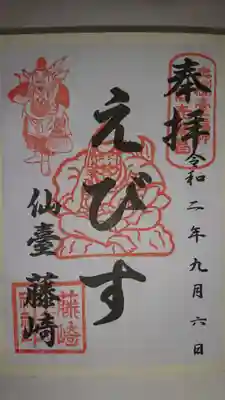 奉拝
令和二年九月六日
えびす
仙臺 藤崎
藤崎